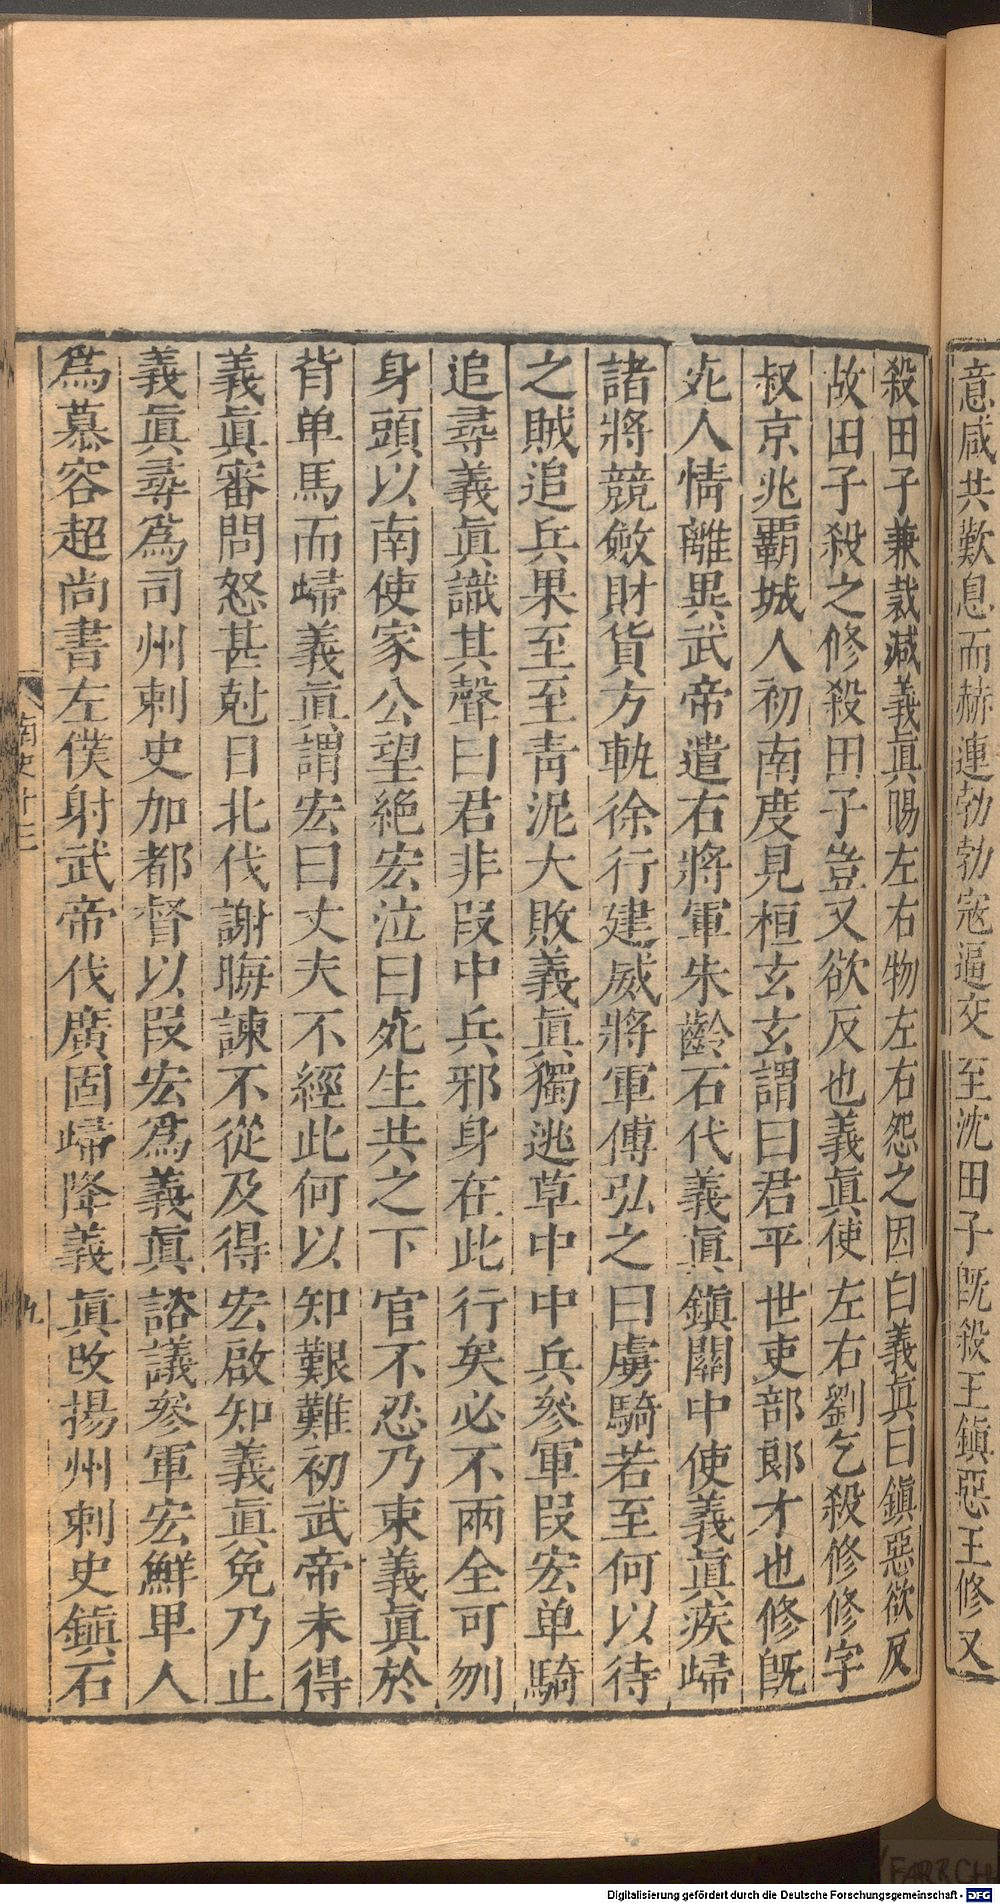 意咸共歎息而赫連勃勃寇逼交至沈田子旣殺王鎭惡王修又
殺田子兼裁減義眞賜左右物左右怨之因白義眞曰鎭惡欲反
故田子殺之修殺田子豈又欲反也義眞使左右劉乞殺修修字
叔京兆霸城人初南度見桓玄玄謂曰君平世吏部郎才也修旣
死人情離異武帝遣右將軍朱齡石代義眞鎭關中使義眞疾歸
諸將競斂財貨方軌徐行建威將軍傅弘之曰虜騎若至何以待
之賊追兵果至至青泥大敗義眞獨逃草中中兵參軍段宏单騎
追尋義眞識其聲曰君非段中兵邪身在此行矣必不兩全可刎
身頭以南使家公望絶宏泣曰死生共之下官不忍乃束義眞於
背单馬而歸義眞謂宏曰丈夫不經此何以知艱難初武帝未得
義眞審問怒甚尅日北伐謝晦諫不從及得宏啟知義眞免乃止
義眞尋爲司州刺史加都督以段宏爲義眞諮議參軍宏鮮卑人
爲慕容超尚書左僕射武帝伐廣固歸降義眞改揚州刺史鎭石
南史十三
九
Digitalisierung gefördert durch die Deutsche Forschungsgemeinschaft - DFG